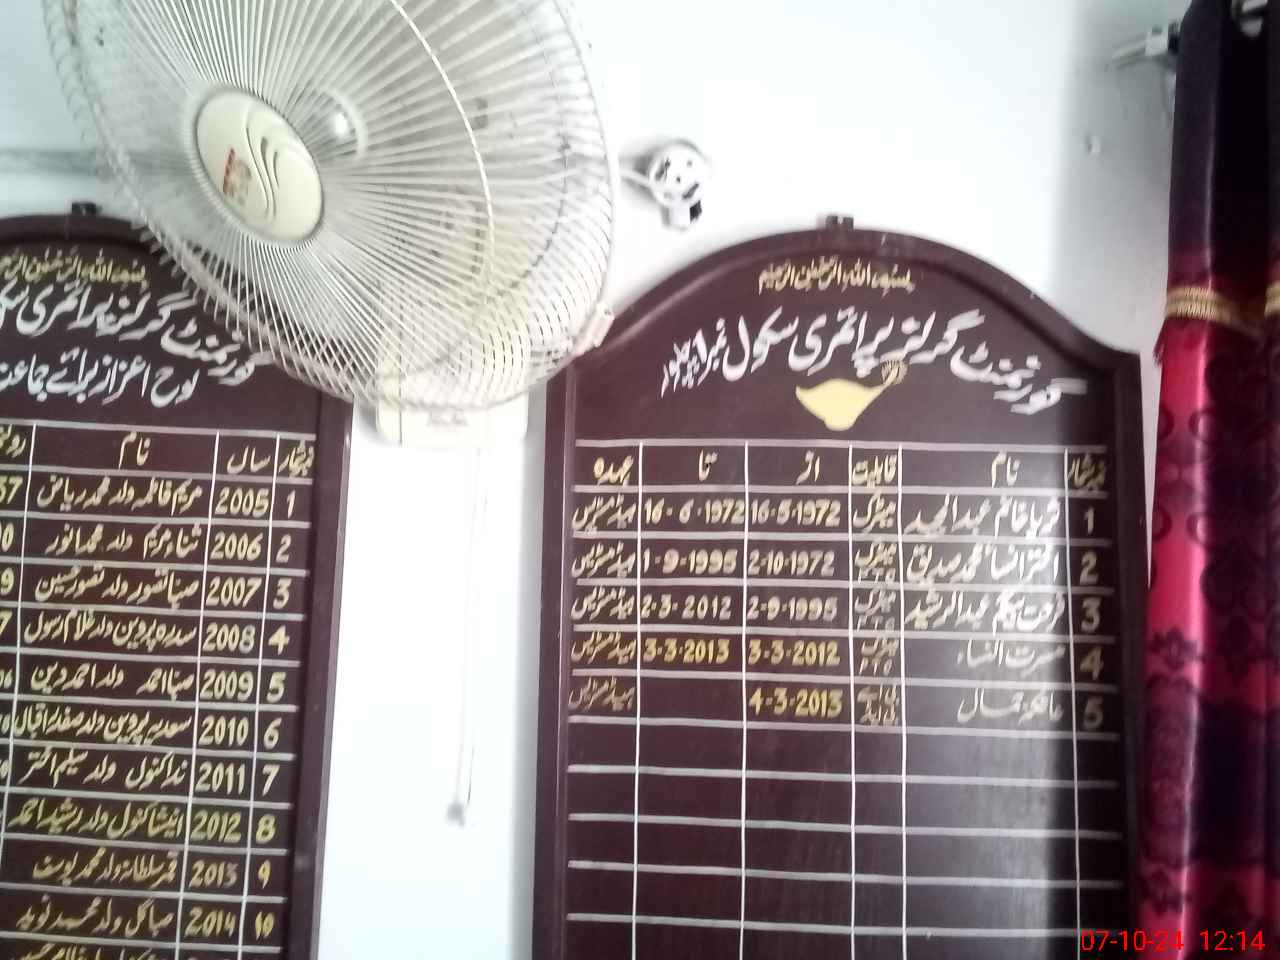 بسم اللہ الرحمن الرحیم
گورنمنٹ گرلز پرائمری سکول نمبر 1
نمبر شمار نام قابلیت از تا عہدہ
1 ثریا خانم عبدالمجید میٹرک 16-5-1972 16-6-1972 ہیڈ مسٹریس
2 اختر النسا محمد صدیق میٹرک PTC 2-10-1972 1-9-1995 ہیڈ مسٹریس
3 فرحت بیگم عبدالرشید میٹرک PTC 2-9-1995 2-3-2012 ہیڈ مسٹریس
4 مسرت النساء میٹرک PTC 3-3-2012 3-3-2013 ہیڈ مسٹریس
5 مالکہ جمال بی اے بی ایڈ 4-3-2013 ہیڈ مسٹریس
بسم اللہ الرحمن الرحیم
گورنمنٹ گرلز پرائمری
لوح اعزاز برائے جماعت
نمبر شمار سال نام
1 2005 مریم فاطمہ ولد محمد ریاض
2 2006 ثناء مریم ولد محمد انور
3 2007 صبا تصور ولد تصور حسین
4 2008 سدرہ پروین ولد غلام رسول
5 2009 صبا احمد ولد احمد دین
6 2010 سعدیہ پروین ولد صفدر اقبال
7 2011 ندا کنول ولد سلیم اختر
8 2012 انیشا کنول ولد رشید احمد
9 2013 ثمر سلطانہ ولد محمد یوسف
10 2014 صبا گل ولد محمد نوید
07-10-24 12:14